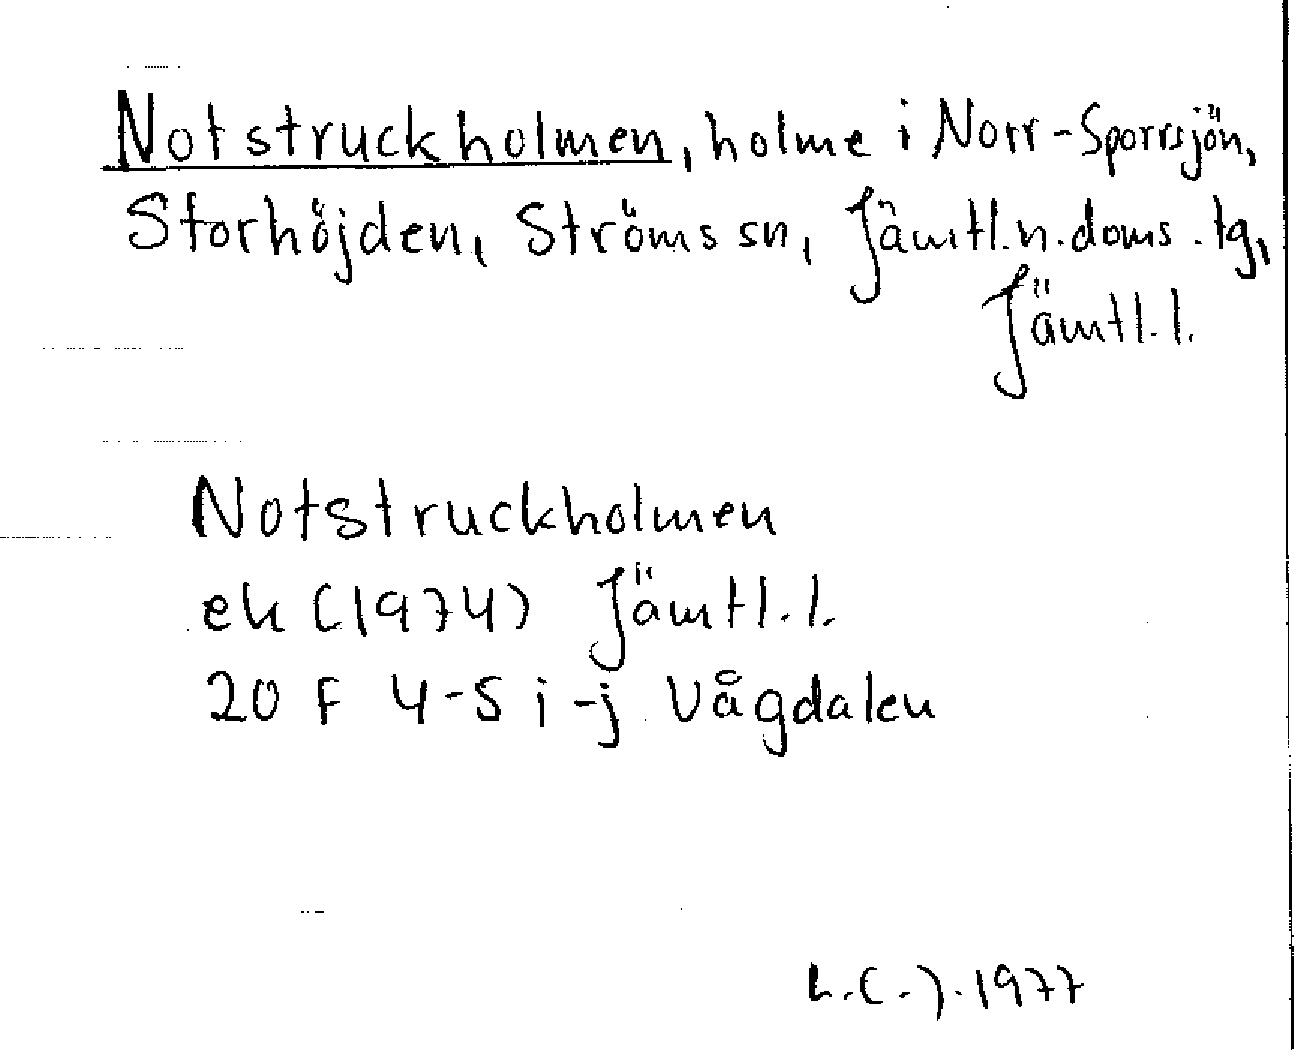 Notstruckholmen, holme i Norr-Sporrsjön,
Storhöjden, Ströms sn, Jämtl.n.doms.tg,
Jämtl.l.
Notstruckholmen
ek (1974) Jämtl.l.
20 F 4-5 i-j Vågdalen
L.C.J. 1977